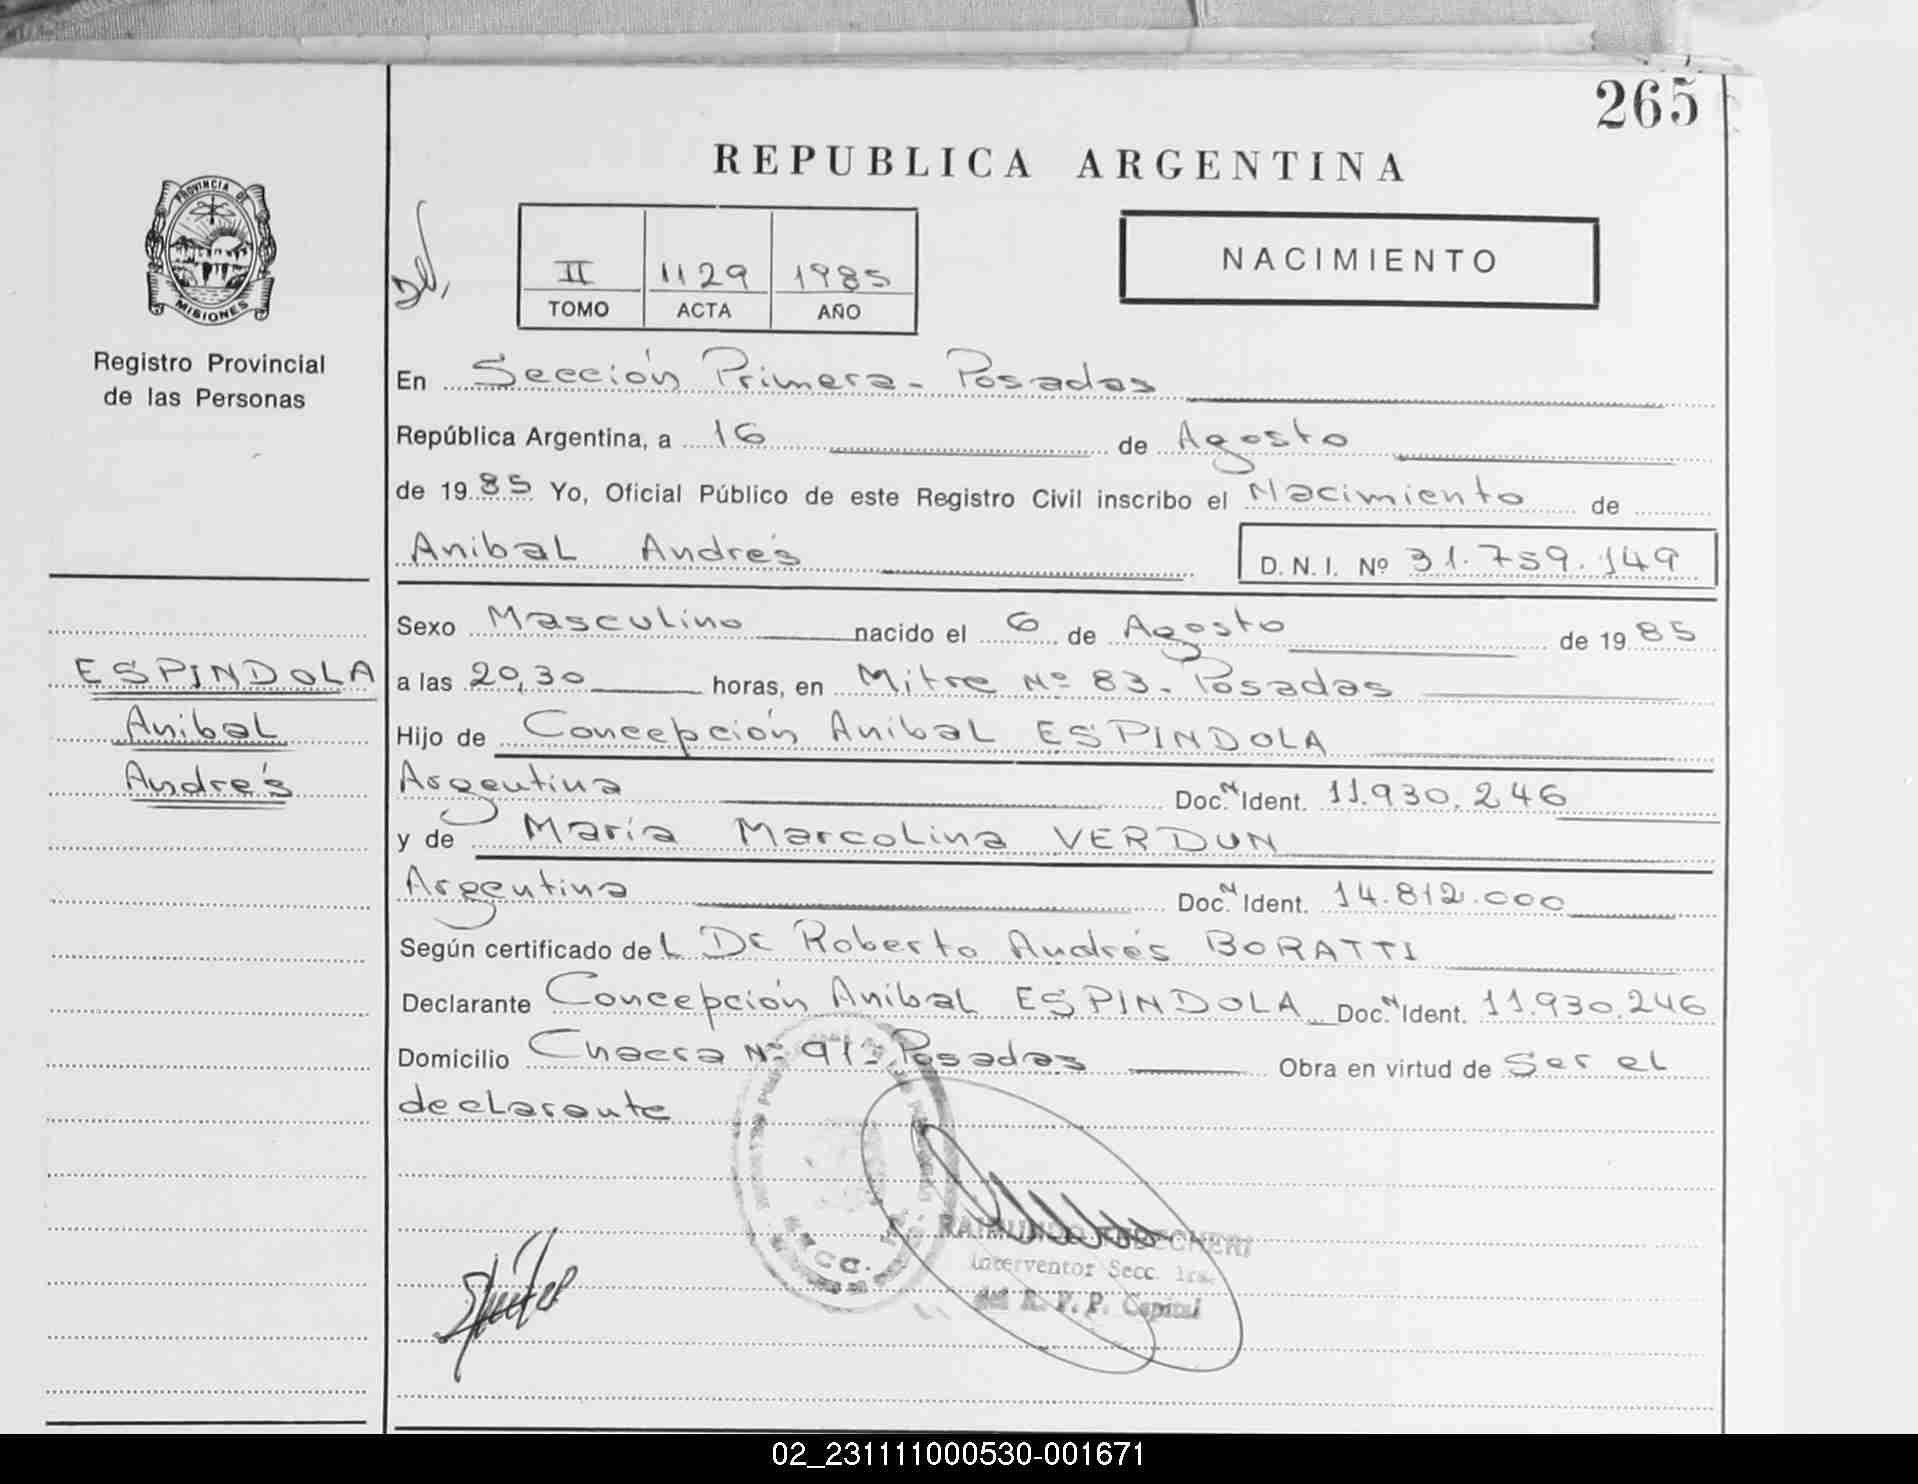 265
REPUBLICA ARGENTINA
PROVINCIA DE
MISIONES
Registro Provincial
de las Personas
II 1129 1985
TOMO ACTA AÑO
NACIMIENTO
En Sección Primera - Posadas
República Argentina, a 16 de Agosto
de 1985 Yo, Oficial Público de este Registro Civil inscribo el Nacimiento de
Anibal Andrés D. N. I. Nº 31.759.149
Sexo Masculino nacido el 6 de Agosto de 1985
ESPINDOLA
a las 20,30 horas, en Mitre Nº 83 - Posadas
Anibal
Hijo de Concepción Anibal ESPINDOLA
Andrés
Argentina Doc. N Ident. 11.930.246
y de María Marcolina VERDUN
Argentina Doc. N Ident. 14.812.000
Según certificado del Dr Roberto Andrés BORATTI
Declarante Concepción Anibal ESPINDOLA Doc. N Ident. 11.930.246
Domicilio Chacra Nº 91 - Posadas Obra en virtud de Ser el
declarante
RAIMUNDO
Interventor Secc. 1ra.
del R. P. P. Capital
02_231111000530-001671